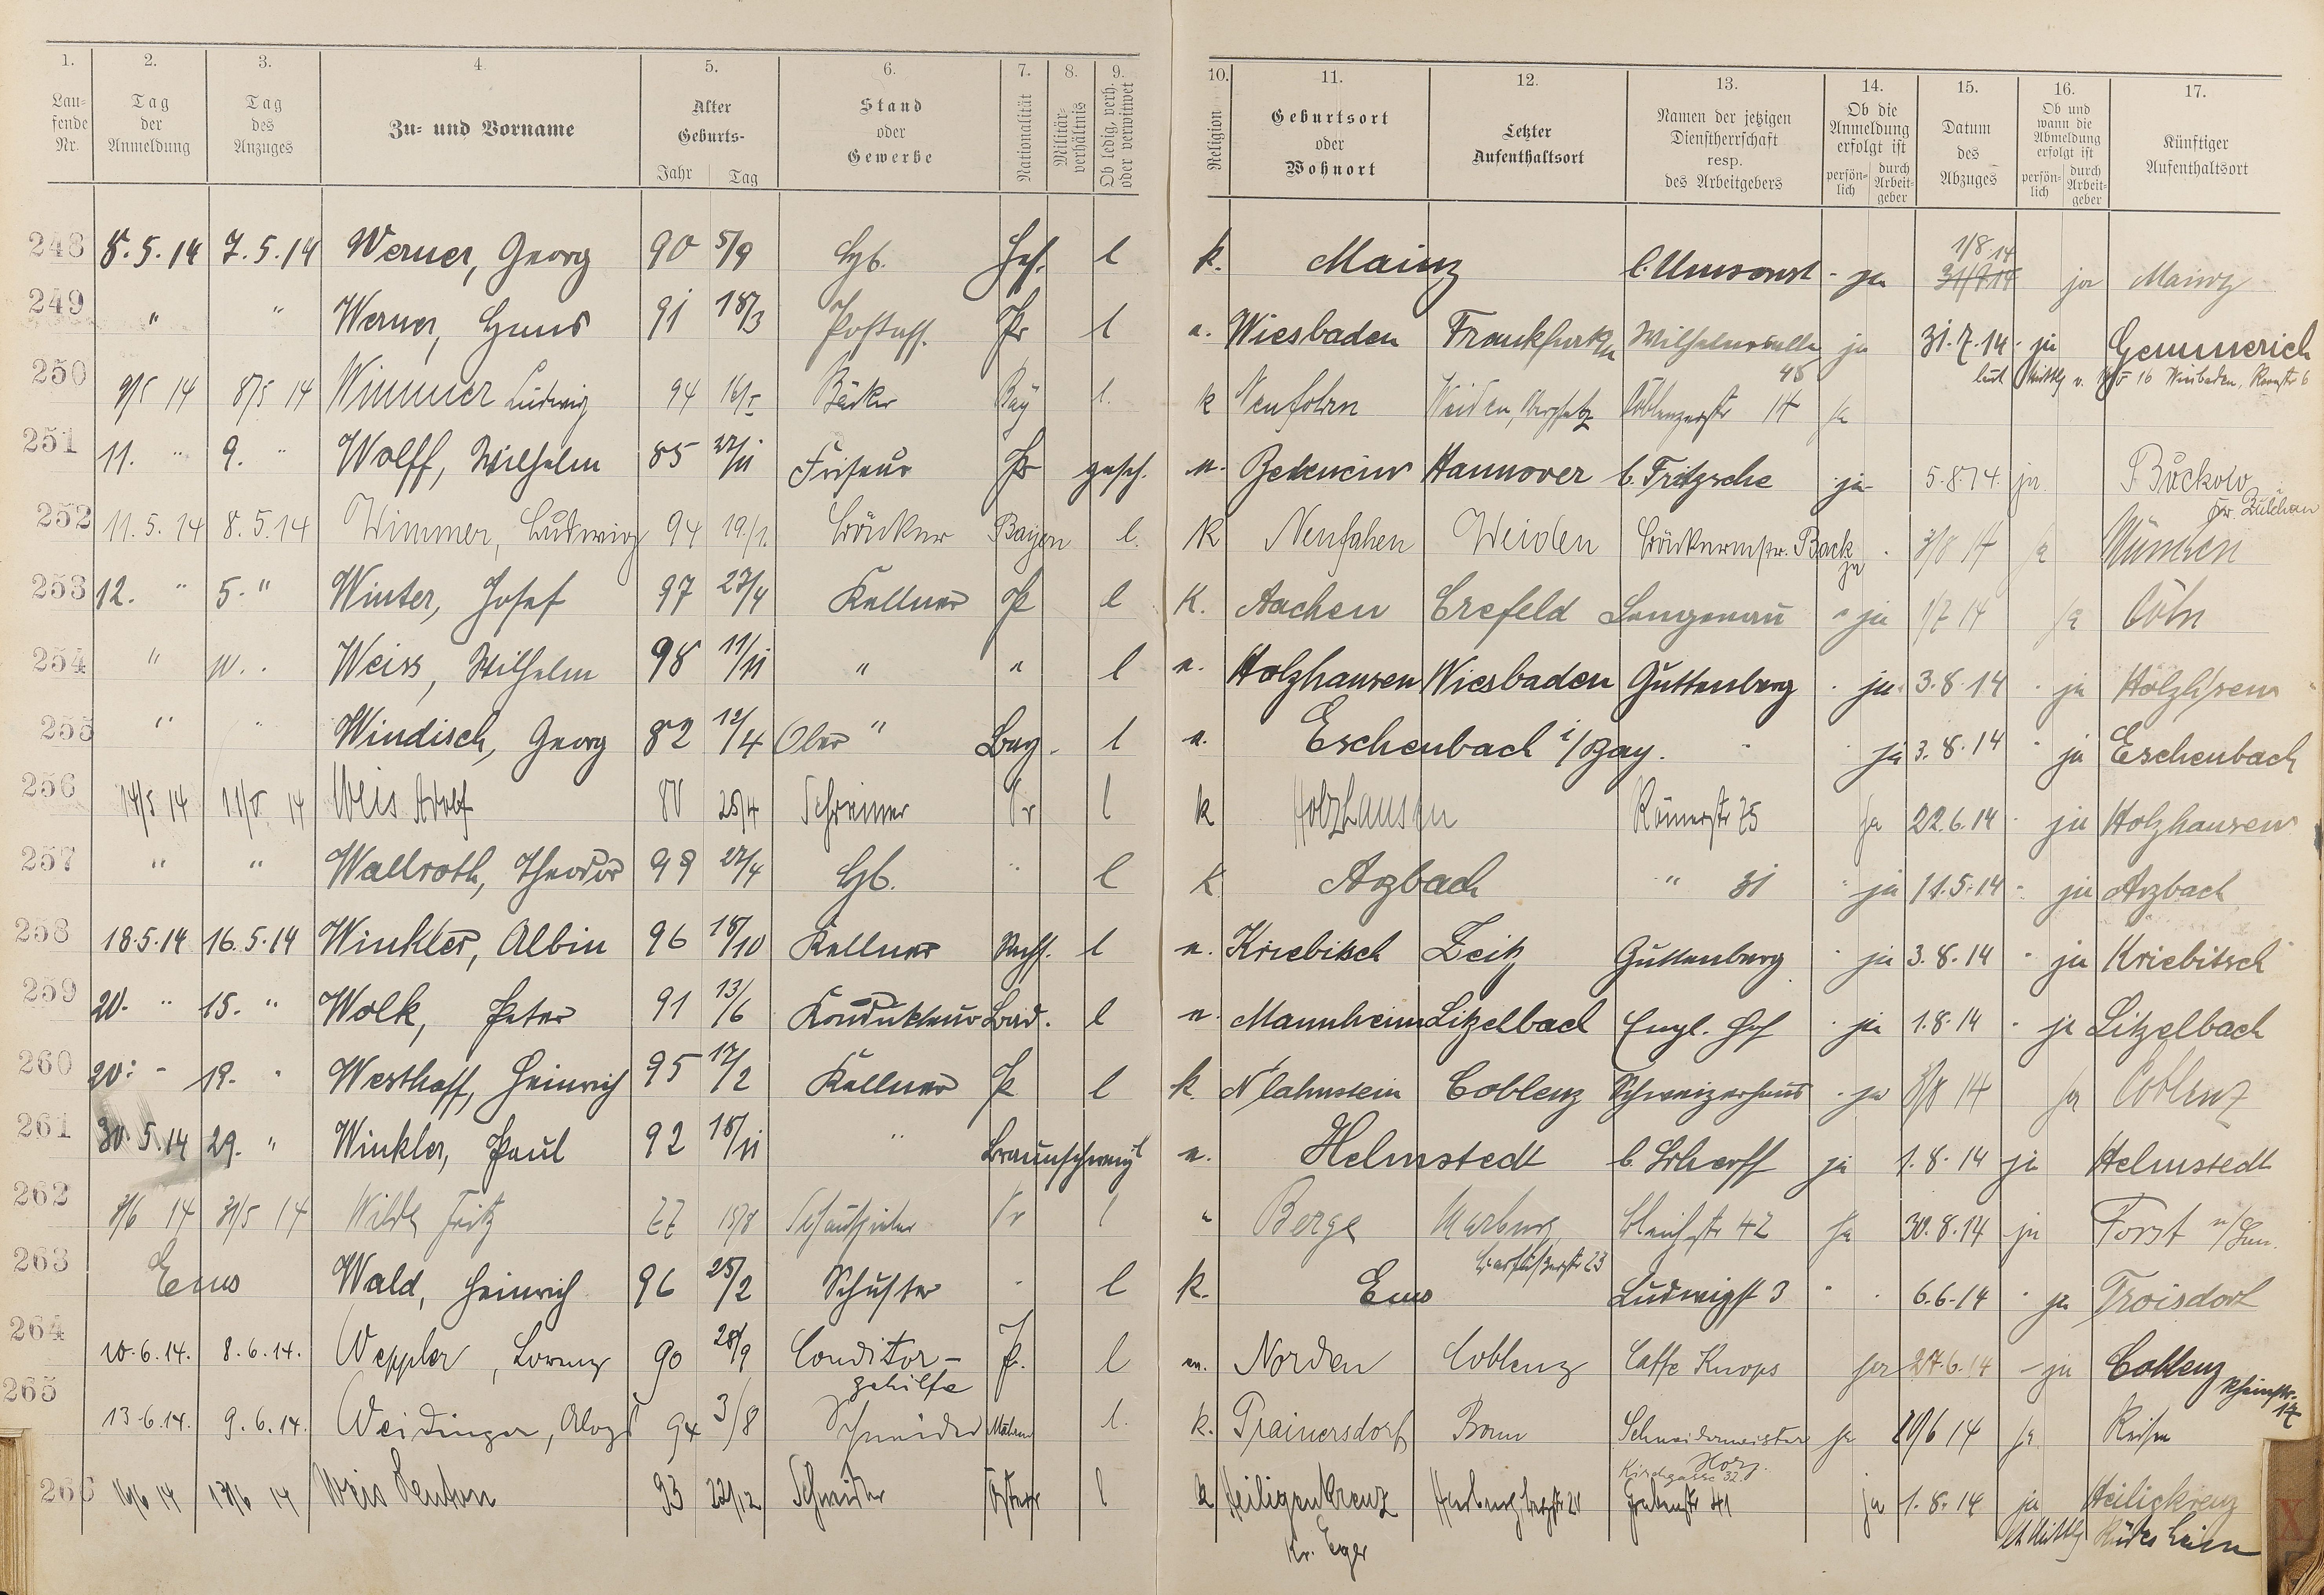 1. 2. 3. 4. 5. 6. 7. 8. 9. 10. 11. 12. 13. 14. 15. 16. 17.
Lau-fende Nr. Tag der Anmeldung Tag des Anzuges Zu- und Vorname Alter Geburts- Jahr Tag Stand oder Gewerbe Nationalität Militär-verhältnis Ob ledig, verh. oder verwitwet Religion Geburtsort oder Wohnort Letzter Aufenthaltsort Namen der jetzigen Dienstherrschaft resp. des Arbeitgebers Ob die Anmeldung erfolgt ist persön-lich durch Arbeit-geber Datum des Abzuges Ob und wann die Abmeldung erfolgt ist persön-lich durch Arbeit-geber Künftiger Aufenthaltsort
248 8.5.14 7.5.14 Werner, Georg 90 5/9 Hess. l k. Mainz b. Umsonst - ja 1/8.14 31/7 14 ja Mainz
249 " " Werner, Hans 91 18/3 Postass. Pr l e. Wiesbaden Frankfurt Wilhelmsallee 45 ja 31.7.14 - ja Gemmerich
250 9/5 14 8/5 14 Wimmer Ludwig 94 16/5 Bäcker Bay l. k Neufahrn Weiden, Coblenzerstr 14 ja
251 11. " 9. " Wolff, Wilhelm 85 27/11 Friseur Pr gesch. e. Hannover b. Fritzsche ja 5.8.14. ja Bückow
252 11.5.14 8.5.14 Wimmer, Ludwig 94 19./1. Bäcker Bayern l. k Neufahen Weiden Bäckermstr. Back ja 3/8 14 ja München
253 12. " 5. " Winter, Josef 97 27/4 Kellner P l k. Aachen Crefeld Langenau " ja 1/7 14 ja Cöln
254 " 10. . Weiss, Wilhelm 98 11/11 " " l e. Holzhausen Wiesbaden Guttenberg . ja 3.8.14 - ja Holzhsen
255 " " Windisch, Georg 82 12/4 Ober " Bay. l e. Eschenbach i/Bay. " ja 3.8.14 " ja Eschenbach
256 14/5 14 11/5 14 Weis Adolf 80 25/4 Schreiner Pr l k Holzhausen Römerstr 75 ja 22.6.14 - ja Holzhausen
257 " " Wallroth, Theodor 99 27/4 " l k Arzbach " 31 " ja 11.5.14 - ja Arzbach
258 18.5.14 16.5.14 Winkler, Albin 96 18/10 Kellner Sachs. l e. Kriebitsch Zeitz Guttenberg " ja 3.8.14 " ja Kriebitsch
259 20. " 15. " Wolk, Peter 91 13/6 Kondukteur Bad. l e. Mannheim Litzelbach Engl. Hof . ja 1.8.14 " ja Litzelbach
260 20. - 19. " Westhoff, Heinrich 95 17/2 Kellner P l k. N'lahnstein Coblenz Schweizerhaus . ja 3/8 14 ja Coblenz
261 30.5.14 29. " Winkler, Paul 92 18/11 " Braunschweig l e. Helmstedt b. Scherff ja 1.8.14 ja Helmstedt
262 3/6 14 31/5 14 Wilde Fritz 77 15/8 Schauspieler Pr l " Berge Marburg Barfüßerstr 23 Bleichstr 42 ja 30.8.14 ja Forst
263 Ems Wald, Heinrich 96 25/2 Schuster " l k. Ems Ludwigst 3 " . 6.6.14 - ja Troisdorf
264 10.6.14. 8.6.14. Weppler, Lorenz 90 28/9 Conditor-gehilfe P. l ev. Norden Coblenz Caffe Knops ja 27.6.14 - ja Coblenz Rheinstr. 17
265 13.6.14. 9.6.14. Weidinger, Aloys 94 3/8 Schneider Mähren l. k. Prainersdorf Bonn Schneidermeister Horz. Kirchgasse 32. ja 20/6 14 ja Reisen
266 16/6 14 13/6 14 Weis 93 22/12 Schneider Österr l k Heiligenkreuz Kr. Eger Grabenstr 41 ja 1.8.14 ja Heiligkreuz
Rüdesheim